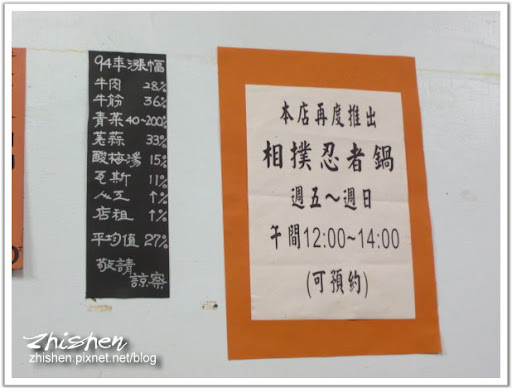 94年漲幅
牛肉 28%
牛筋 36%
青菜 40~200%
蔥蒜 33%
酸梅湯 15%
瓦斯 11%
人工 ↑%
店租 ↑%
平均值 27%
敬請
諒察
本店再度推出
相撲忍者鍋
週五～週日
午間12:00~14:00
(可預約)
Zhishen
zhishen.pixnet.net/blog